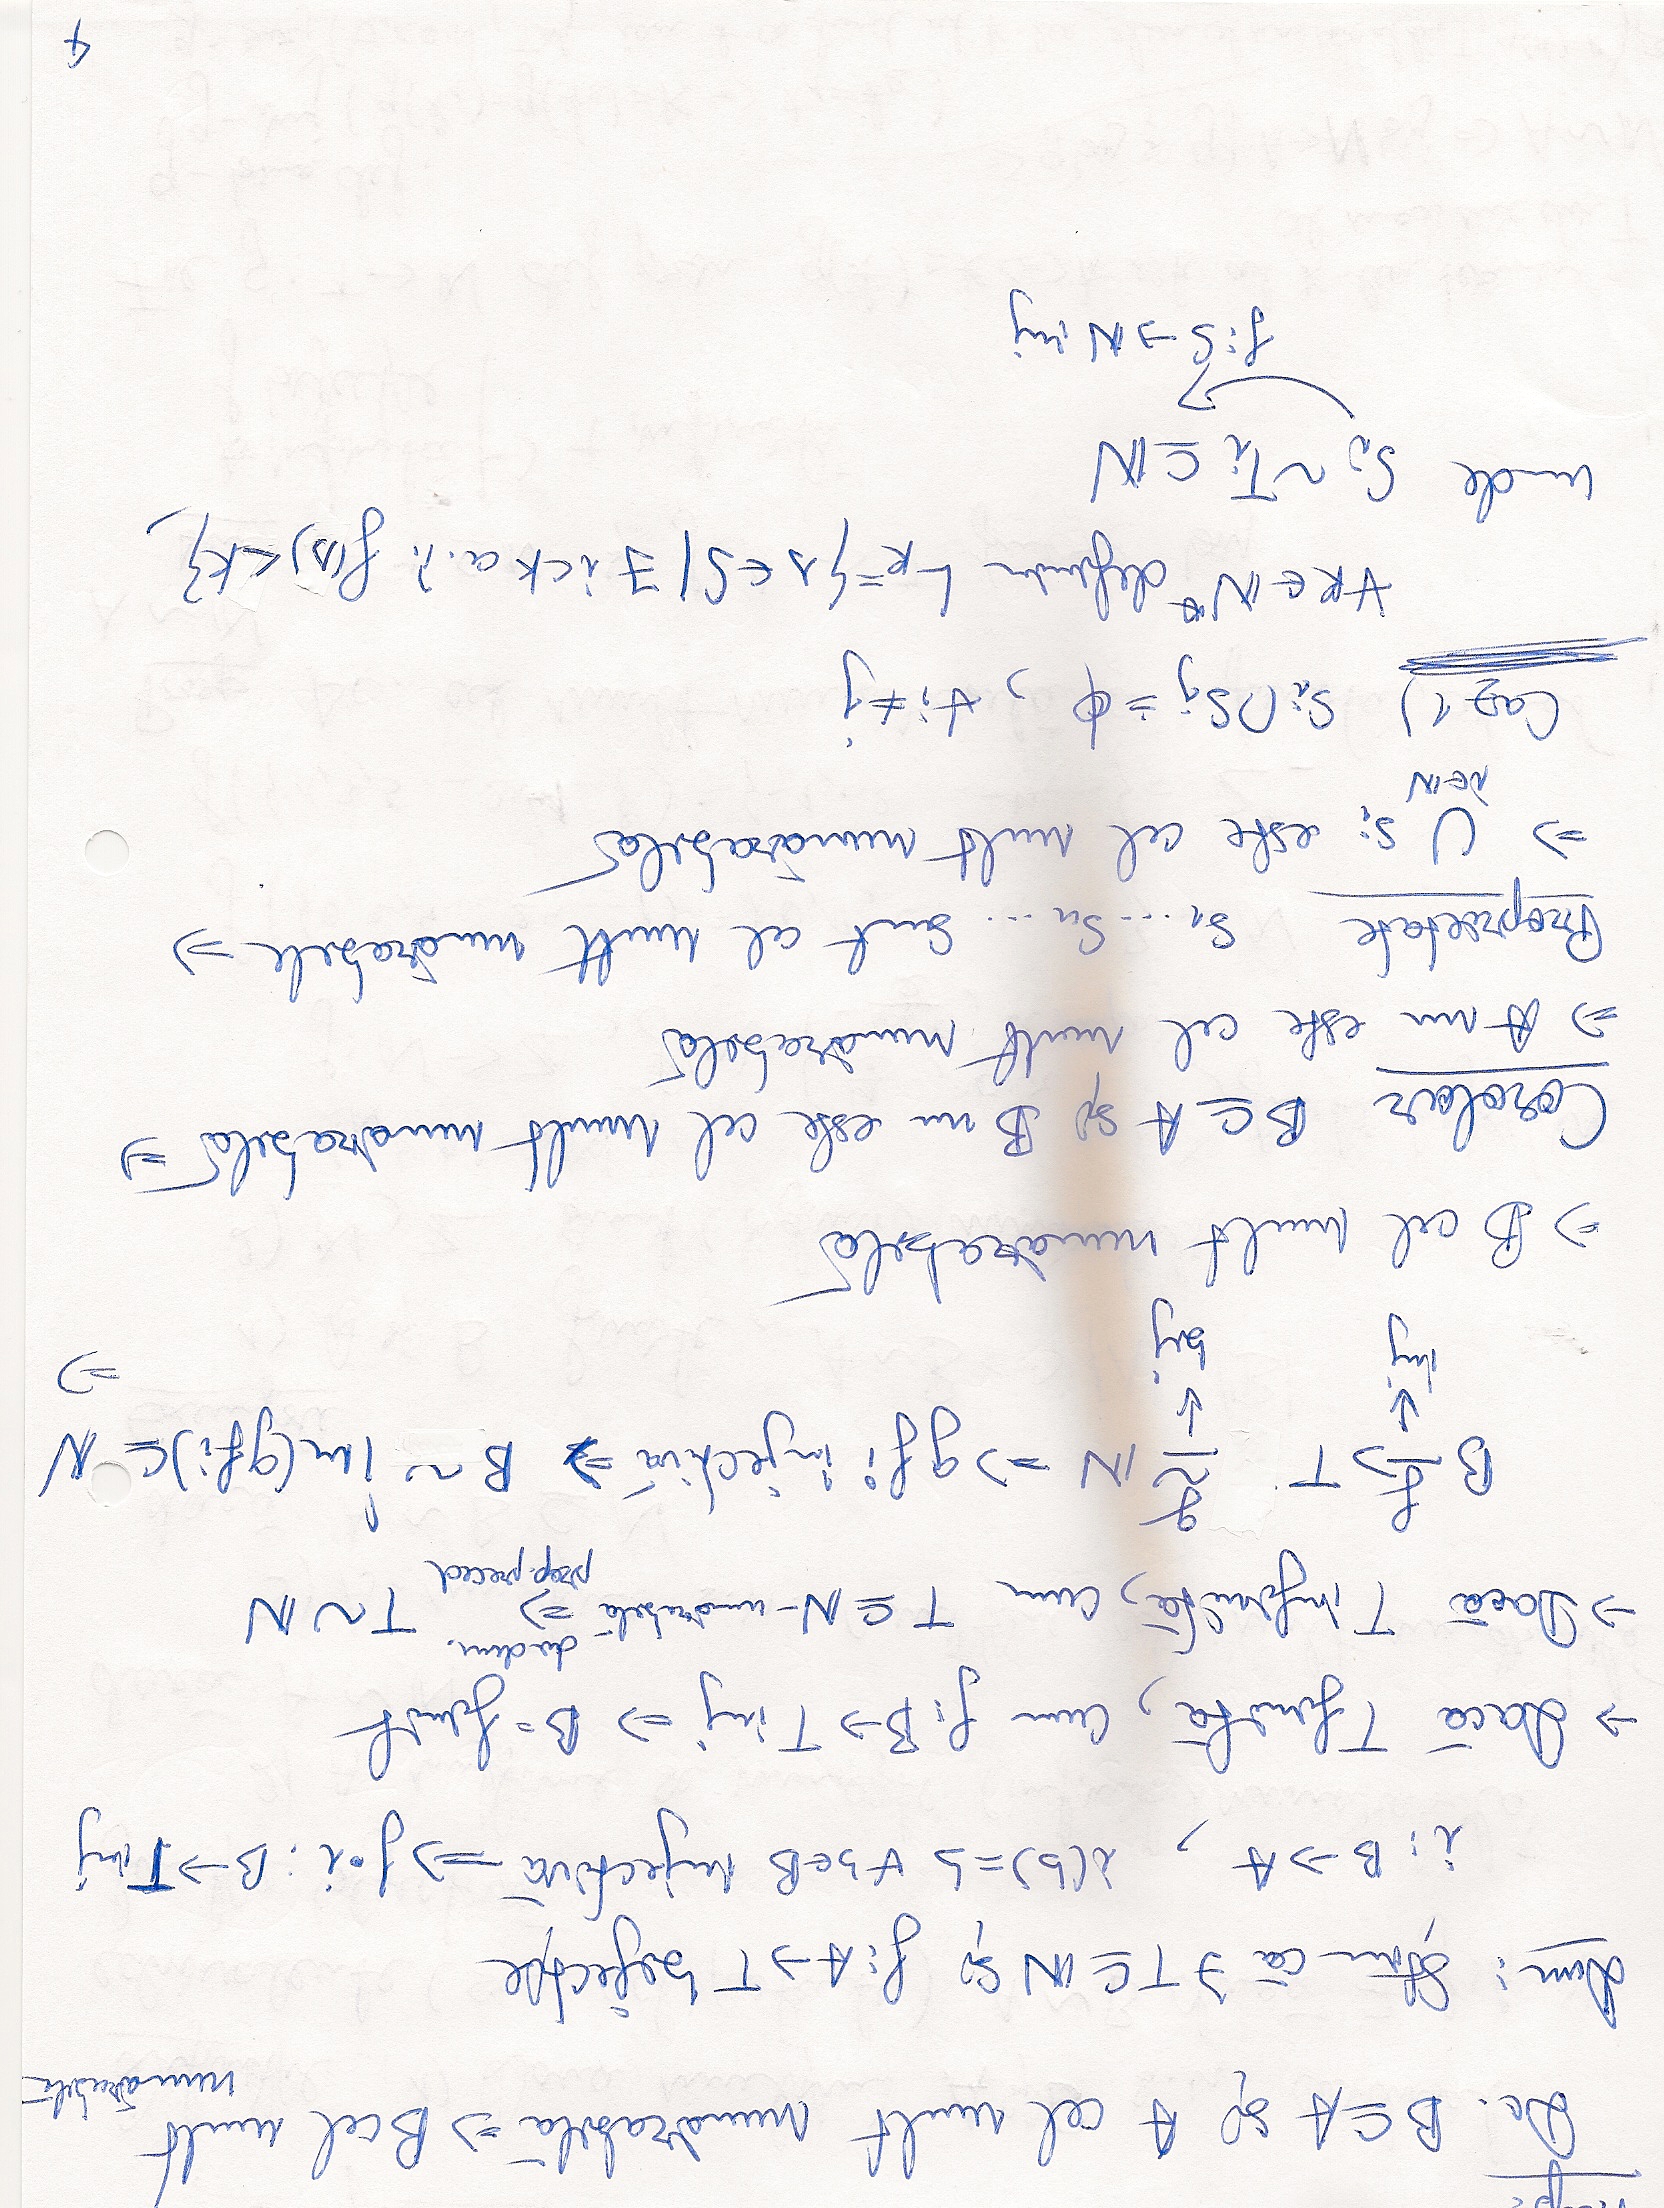 Prop:
Dc. B ⊆ A și A cel mult numărabilă ⇒ B cel mult numărabilă
Dem: Știm că ∃ T ⊆ ℕ și f: A → T bijecție
i: B → A, i(b) = b ∀ b ∈ B injectivă ⇒ f∘i: B → T inj
→ Dacă T finită, cum f: B → T inj ⇒ B = finit
→ Dacă T infinită, cum T ⊆ ℕ - numărabilă ⇒ T ~ ℕ
din dem. prop. preced
B f→ T g~ ℕ ⇒ gfi injectivă ⇒ B ~ Im(gfi) ⊆ ℕ ⇒
↓ inj ↓ bij
⇒ B cel mult numărabilă
Corolar B ⊆ A și B nu este cel mult numărabilă ⇒
⇒ A nu este cel mult numărabilă
Proprietate S₁ ... Sₙ ... sunt cel mult numărabile ⇒
⇒ ⋃ Sᵢ este cel mult numărabilă
i∈ℕ
Caz 1) Sᵢ ∩ Sⱼ = ϕ, ∀ i ≠ j
∀ k ∈ ℕ* definim L_k = {s ∈ S | ∃ i < k a.î. f(s) < k},
unde Sᵢ ~ Tᵢ ⊆ ℕ
f: Sᵢ → ℕ inj
4